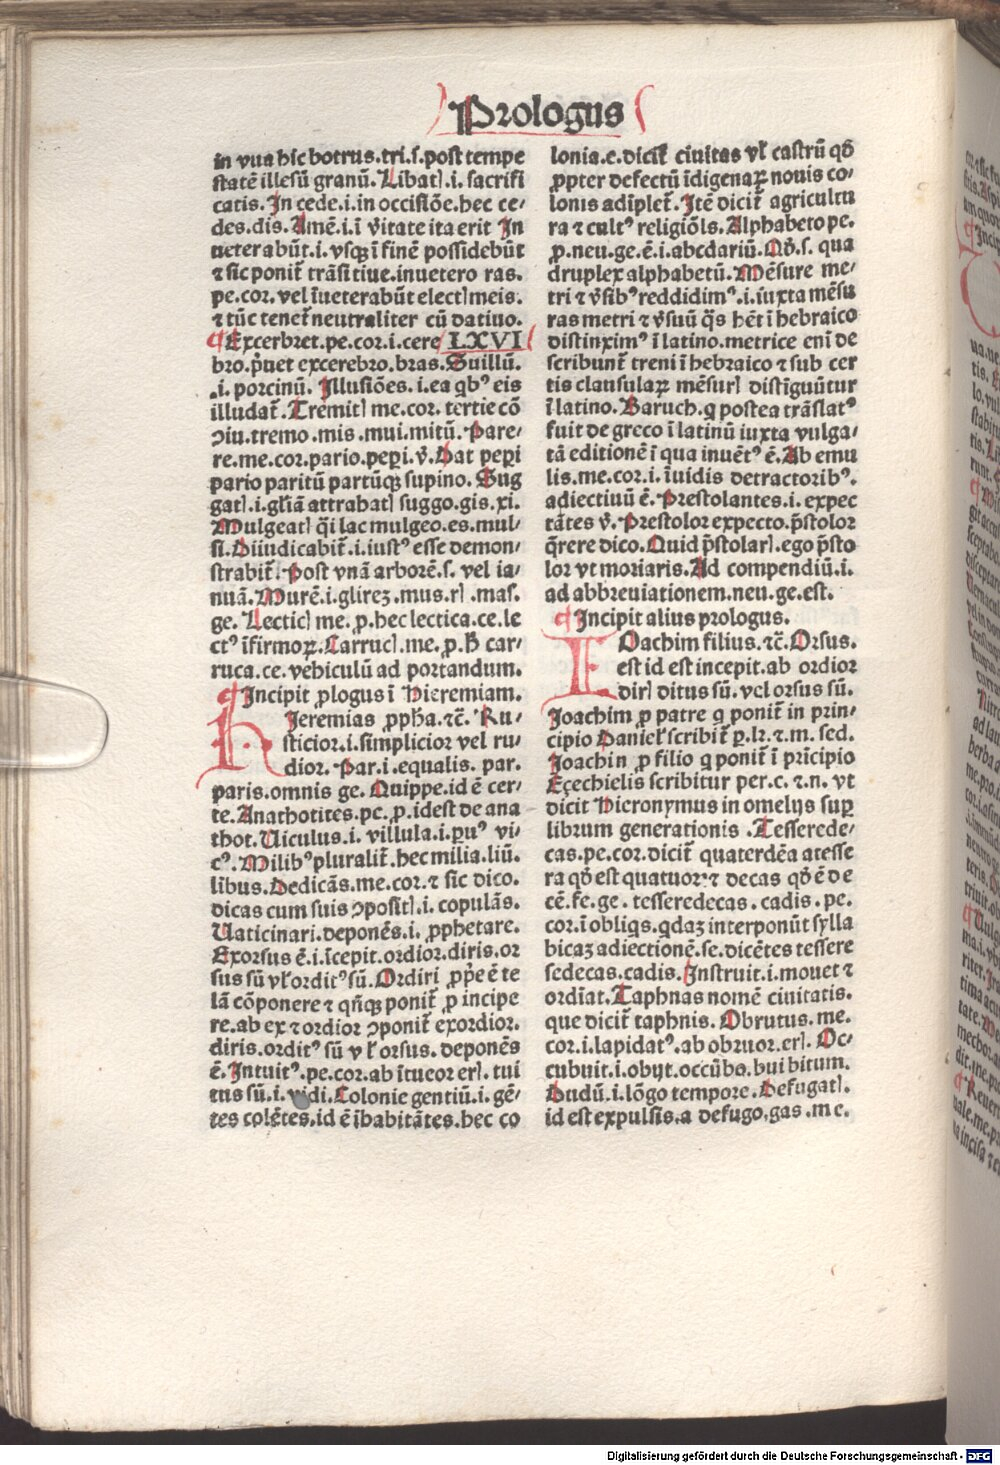 Prologus
in vua hic botrus.tri.ſ.poſt tempe
ſtatē illeſū granū. Libatꝭ.i. ſacrifi
catis. In cede.i.in occiſiōe.hec ce⸗
des.dis. Amē.i.ī v̄itate ita erit In
ueterabūt.i.vſqꝫ ī finē poſſidebūt
⁊ ſic ponit̄ trāſitiue.inuetero ras.
pe.cor. vel īueterabūt electꝭ meis.
⁊ tūc tenet̄ neutraliter cū datiuo.
¶ Excerbret.pe.cor.i.cere LXVI
bro.p̄uet excerebro.bras. Suillū.
.i. porcinū. Illuſiōes.i.ea qbꝰ eis
illudat̄. Tremitꝭ me.cor. tertie cō
ꝯiu.tremo.mis.mui.mitū. Pare⸗
re.me.cor.pario.peꝑi.v̄. Dat peꝑi
pario paritū partūqꝫ ſupino. Sug
gatꝭ.i.gl̄iā attrabatꝭ ſuggo.gis.xi.
Mulgeatꝭ q̄i lac mulgeo.es.mul⸗
ſi. Diiudicabit̄.i.iuſtꝰ eſſe demon⸗
ſtrabit̄. Poſt vnā arborē.ſ. vel ia⸗
nuā. Murē.i.glireꝫ.mus.rꝭ.maſ.
ge. Lecticꝭ me.ꝓ.hec lectica.ce.le
ctꝰ īfirmoꝝ. Carrucꝭ.me.ꝓ.h̄ car⸗
ruca.ce. vehiculū ad portandum.
¶ Incipit ꝓlogus ī Hieremiam.
HJeremias ꝓph̄a.⁊c̄. Ru⸗
ſticior.i.ſimplicior vel ru⸗
dior. Par.i.equalis. par.
paris.omnis ge. Quippe.id ē cer⸗
te. Anathotites.pe.ꝓ.ideſt de ana
thot. Uiculus.i. villula.i.ꝑuꝰ vi⸗
cꝰ. Milibꝰ pluralit̄.hec milia.liū.
libus. Dedicās.me.cor.⁊ ſic dico.
dicas cum ſuis ꝯpoſitꝭ.i. copulās.
Uaticinari.deponēs.i. ꝓphetare.
Exorſus ē.i.īcepit.ordior.diris.or
ſus ſū vl̄ orditꝰ ſū. Ordiri ꝓp̄e ē te
lā cōponere ⁊ qn̄qꝫ ponit̄ ꝓ incipe
re.ab ex ⁊ ordior ꝯponit̄ exordior.
diris.orditꝰ ſū vl̄ orſus. deponēs
ē. Intuitꝰ.pe.cor.ab ītueor erꝭ. tui
tus ſū.i. vidi. Colonie gentiū.i. gē⸗
tes colētes.id ē īhabitātes.hec co
lonia.e.dicit̄ ciuitas vl̄ caſtrū qd̄
ꝓpter defectū īdigenaꝝ nouis co⸗
lonis adīplet̄. Itē dicit̄ agricultu
ra ⁊ cultꝰ religiōis. Alphabeto pe.
ꝓ.neu.ge.ē.i.abcdariū. Qd̄.ſ. qua
druplex alphabetū. Mēſure me⸗
tri ⁊ v̄ſibꝰ reddidimꝰ.i.iuxta mēſu
ras metri ⁊ v̄ſuū q̄s hēt ī hebraico
diſtinximꝰ ī latino.metrice enī de
ſcribunt̄ treni ī hebraico ⁊ ſub cer
tis clauſulaꝝ mēſurꝭ diſtīguūtur
ī latino. Baruch.q poſtea trāſlatꝰ
fuit de greco ī latinū iuxta vulga⸗
tā editionē ī qua inuētꝰ ē. Ab emu
lis.me.cor.i. īuidis detractoribꝰ.
adiectiuū ē. Preſtolantes.i. expec
tātes v̄. Preſtolor expecto.p̄ſtolor
q̄rere dico. Quid p̄ſtolarꝭ.ego p̄ſto
lor vt moriaris. Ad compendiū.i.
ad abbreuiationem.neu.ge.eſt.
¶ Incipit alius prologus.
IOachim filius.⁊c̄. Orſus.
eſt id eſt incepit.ab ordior
dirꝭ ditus ſū. vel orſus ſū.
Joachim ꝓ patre q ponit̄ in prin⸗
cipio Daniel̄ ſcribit̄ ꝑ.h.⁊.m. ſed.
Joachin ꝓ filio q ponit̄ ī prīcipio
Eçechielis ſcribitur per.c.⁊.n. vt
dicit Hieronymus in omelijs ſuꝑ
librum generationis. Teſſerede⸗
cas.pe.cor.dicit̄ quaterdēa a teſſe
ra qd̄ eſt quatuor.⁊ decas qd̄ ē de
cē.fe.ge. teſſeredecas.cadis.pe.
cor.ī obliqs.qdaꝫ interponūt ſylla
bicaꝫ adiectionē.ſe.dicētes teſſere
ſedecas.cadis. Inſtruit.i.mouet ⁊
ordīat. Taphnas nomē ciuitatis.
que dicit̄ taphnis. Obrutus.me.
cor.i.lapidatꝰ.ab obruor.erꝭ. Oc⸗
cubuit.i.obijt.occūbo.bui bitum.
Dudū.i.lōgo tempore. Defugatꝭ.
id eſt expulſis.a defugo.gas.me.
Digitalisierung gefördert durch die Deutsche Forschungsgemeinschaft - DFG